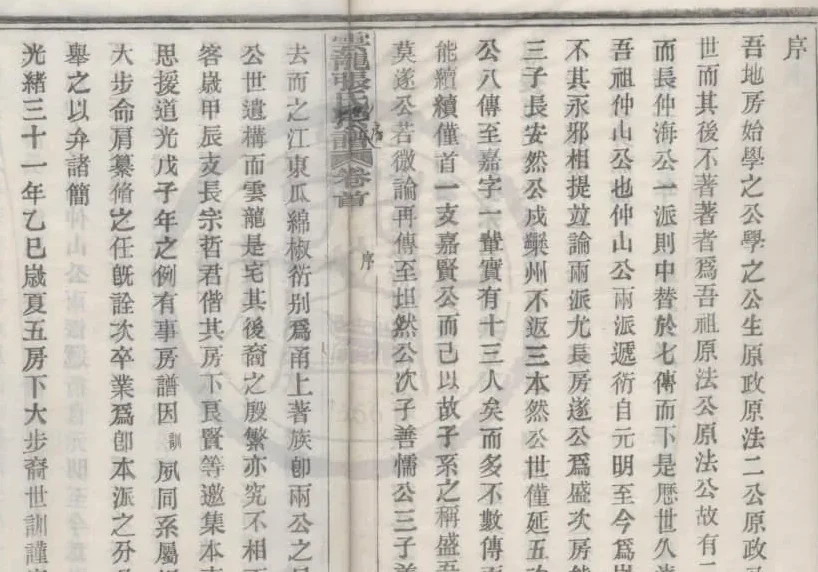 序
吾地房始學之公學之公生原政原法二公原政
世而其後不著著者爲吾祖原法公原法公故有二
而長仲海公一派則中替於七傳而下是歷世久
吾祖仲山公也仲山公兩派遞衍自元明至今爲
不其永邪相提竝論兩派尤長房遂公爲盛次房
三子長安然公戍蘗州不返三本然公世僅延五
公八傳至嘉字一輩實有十三人矣而多不數傳
能續續僅首一支嘉賢公而已以故子系之稱盛
莫遂公若微論再傳至坦然公次子善懦公三子善
雲龍張氏 譜 卷首
序
去而之江東瓜綿椒衍別爲甬上著族卽兩公之
公世遺構而雲龍是宅其後裔之殷繁亦究不相
客歲甲辰支長宗哲君偕其房下良賢等邀集本
思援道光戊子年之例有事房譜因訓夙同系屬
大步命肩纂脩之任旣詮次卒業爲卽本派之分
舉之以弁諸簡
光緒三十一年乙巳歲夏五房下大步裔世訓謹